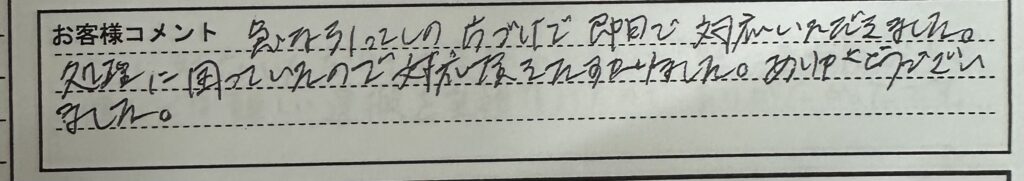 お客様コメント 急な引っこしの片づけで即日で対応いただきました。
処理に困っていたので対応頂きたすかりました。ありがとうござい
ました。